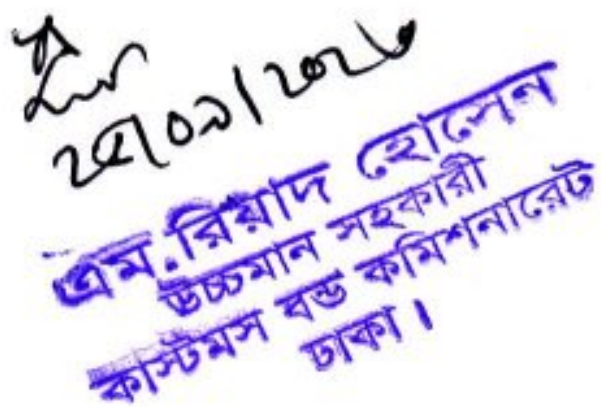 ২৫/০৯/২০২৩
এম.রিয়াদ হোসেন
উচ্চমান সহকারী
কাস্টমস বন্ড কমিশনারেট
ঢাকা।